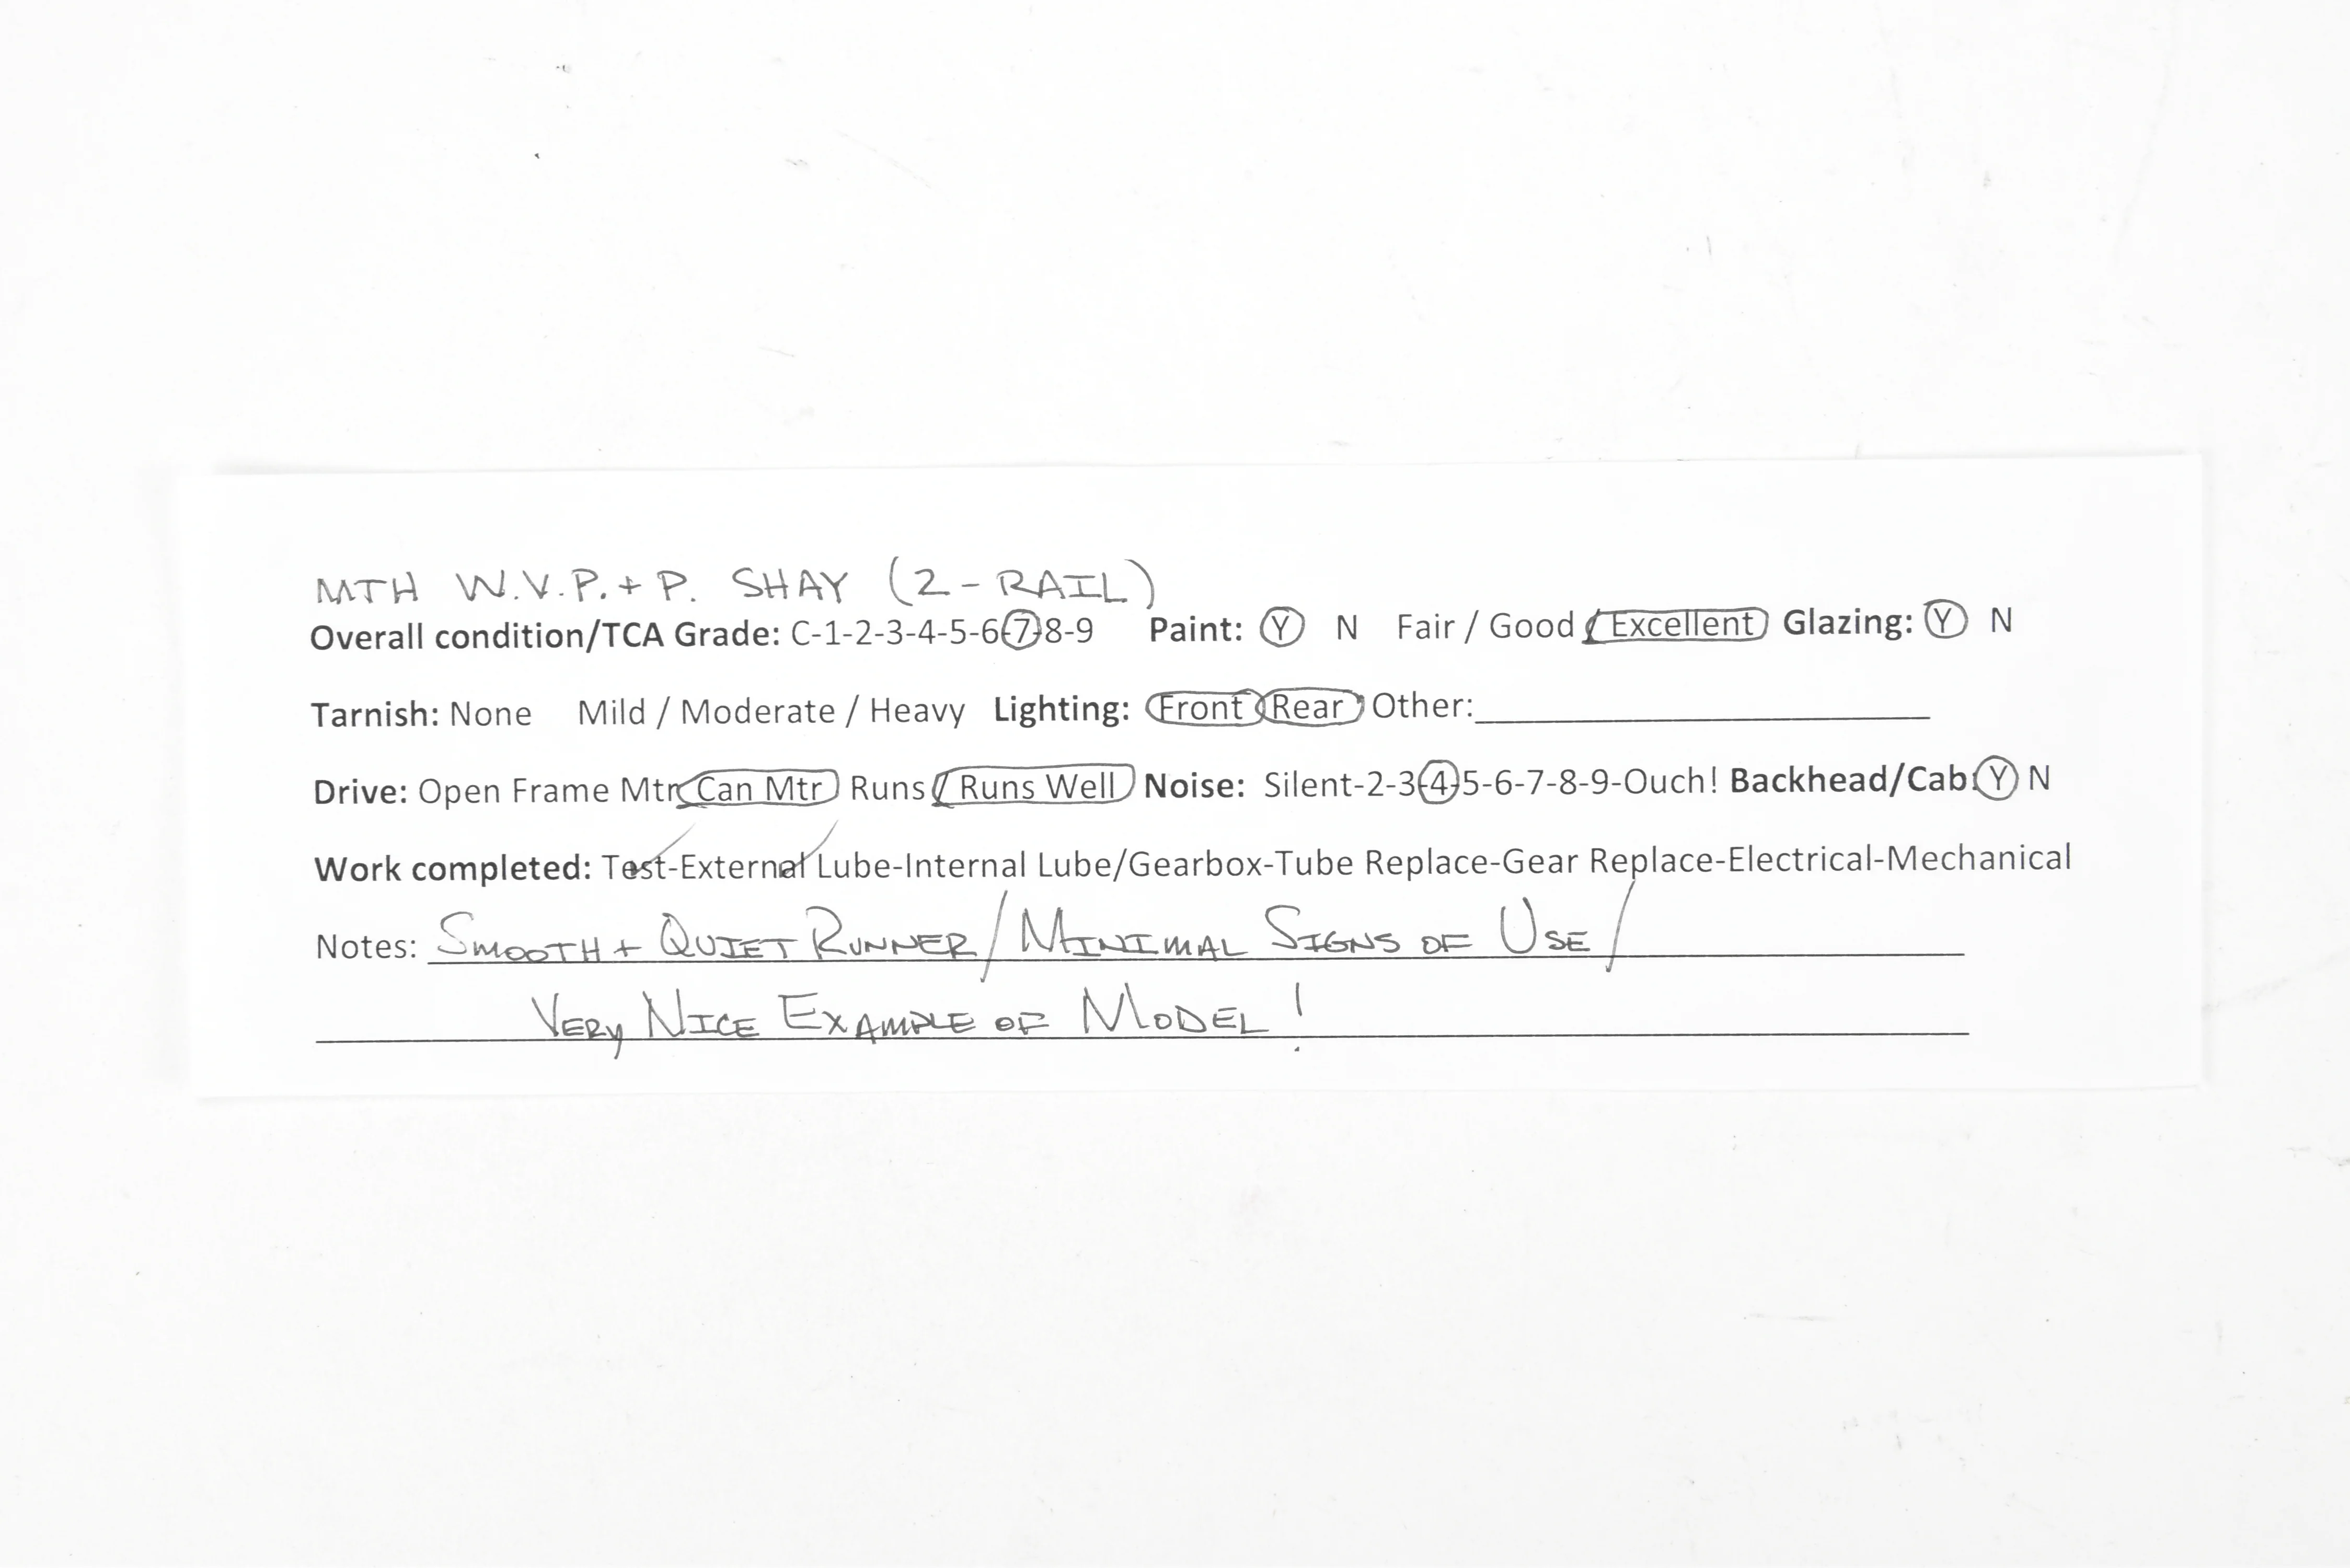 MTH W.V.P.+P. SHAY (2-RAIL)
Overall condition/TCA Grade: C-1-2-3-4-5-6-7-8-9 Paint: Y N Fair / Good / Excellent Glazing: Y N
Tarnish: None Mild / Moderate / Heavy Lighting: Front Rear Other:
Drive: Open Frame Mtr Can Mtr Runs / Runs Well Noise: Silent-2-3-4-5-6-7-8-9-Ouch! Backhead/Cab: Y N
Work completed: Test-External Lube-Internal Lube/Gearbox-Tube Replace-Gear Replace-Electrical-Mechanical
Notes: SMOOTH + QUIET RUNNER / MINIMAL SIGNS OF USE /
VERY NICE EXAMPLE OF MODEL!